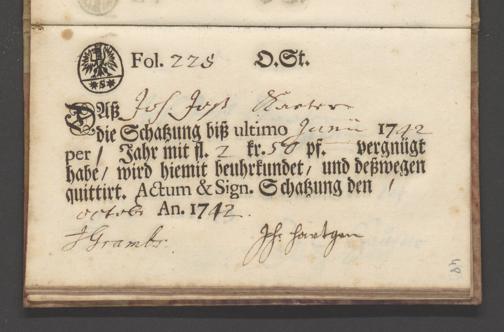 *S*
Fol. 228 O.St.
Daß Joh. Jost
die Schatzung biß ultimo Junii 1742
per / Jahr mit fl. 2 kr. 50 pf. vergnügt
habe / wird hiemit beuhrkundet / und deßwegen
quittirt. Actum & Sign. Schatzung den 1
octobr An. 1742.
Joh. Hartgen
48